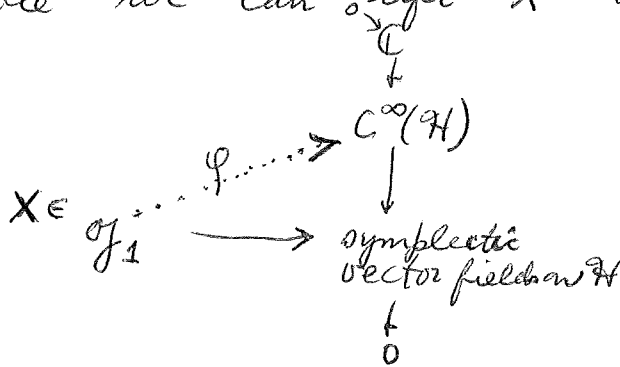 we can
0
ℂ
C^∞(ℋ)
φ
X ∈ 𝔤₁
symplectic
vector fields on ℋ
0